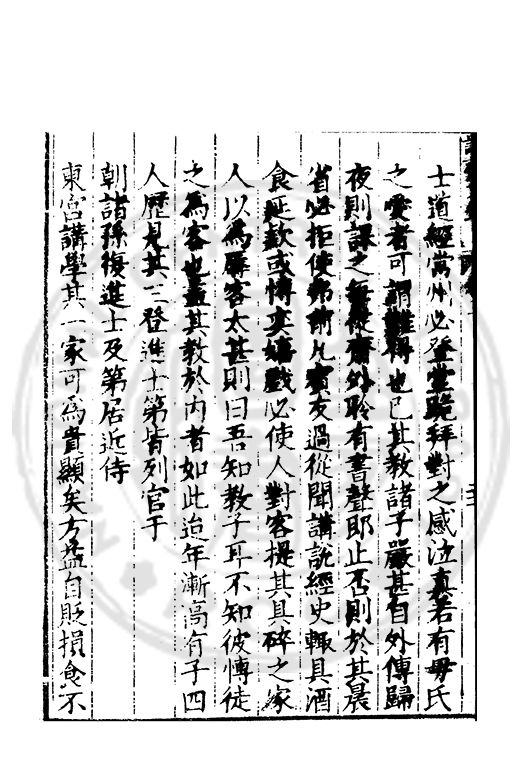 士道經常州必登堂跪拜對之感泣真若有毋氏
之愛者可謂難得也已其教諸子嚴甚自外傳歸
夜則課之每從齋外聆有書聲即止否則於其晨
省必拒使弗前凡賓友過從聞講說經史輒具酒
食延款或慱奕嬉戲必使人對客提其具碎之家
人以為辱客太甚則曰吾知教子耳不知彼慱徒
之為客也盖其教於内者如此迨年漸高有子四
人歷見其三登進士第皆列官于
朝諸孫復進士及第居近侍
東宮講學其一家可為貴顯矣方孟自貶損食不